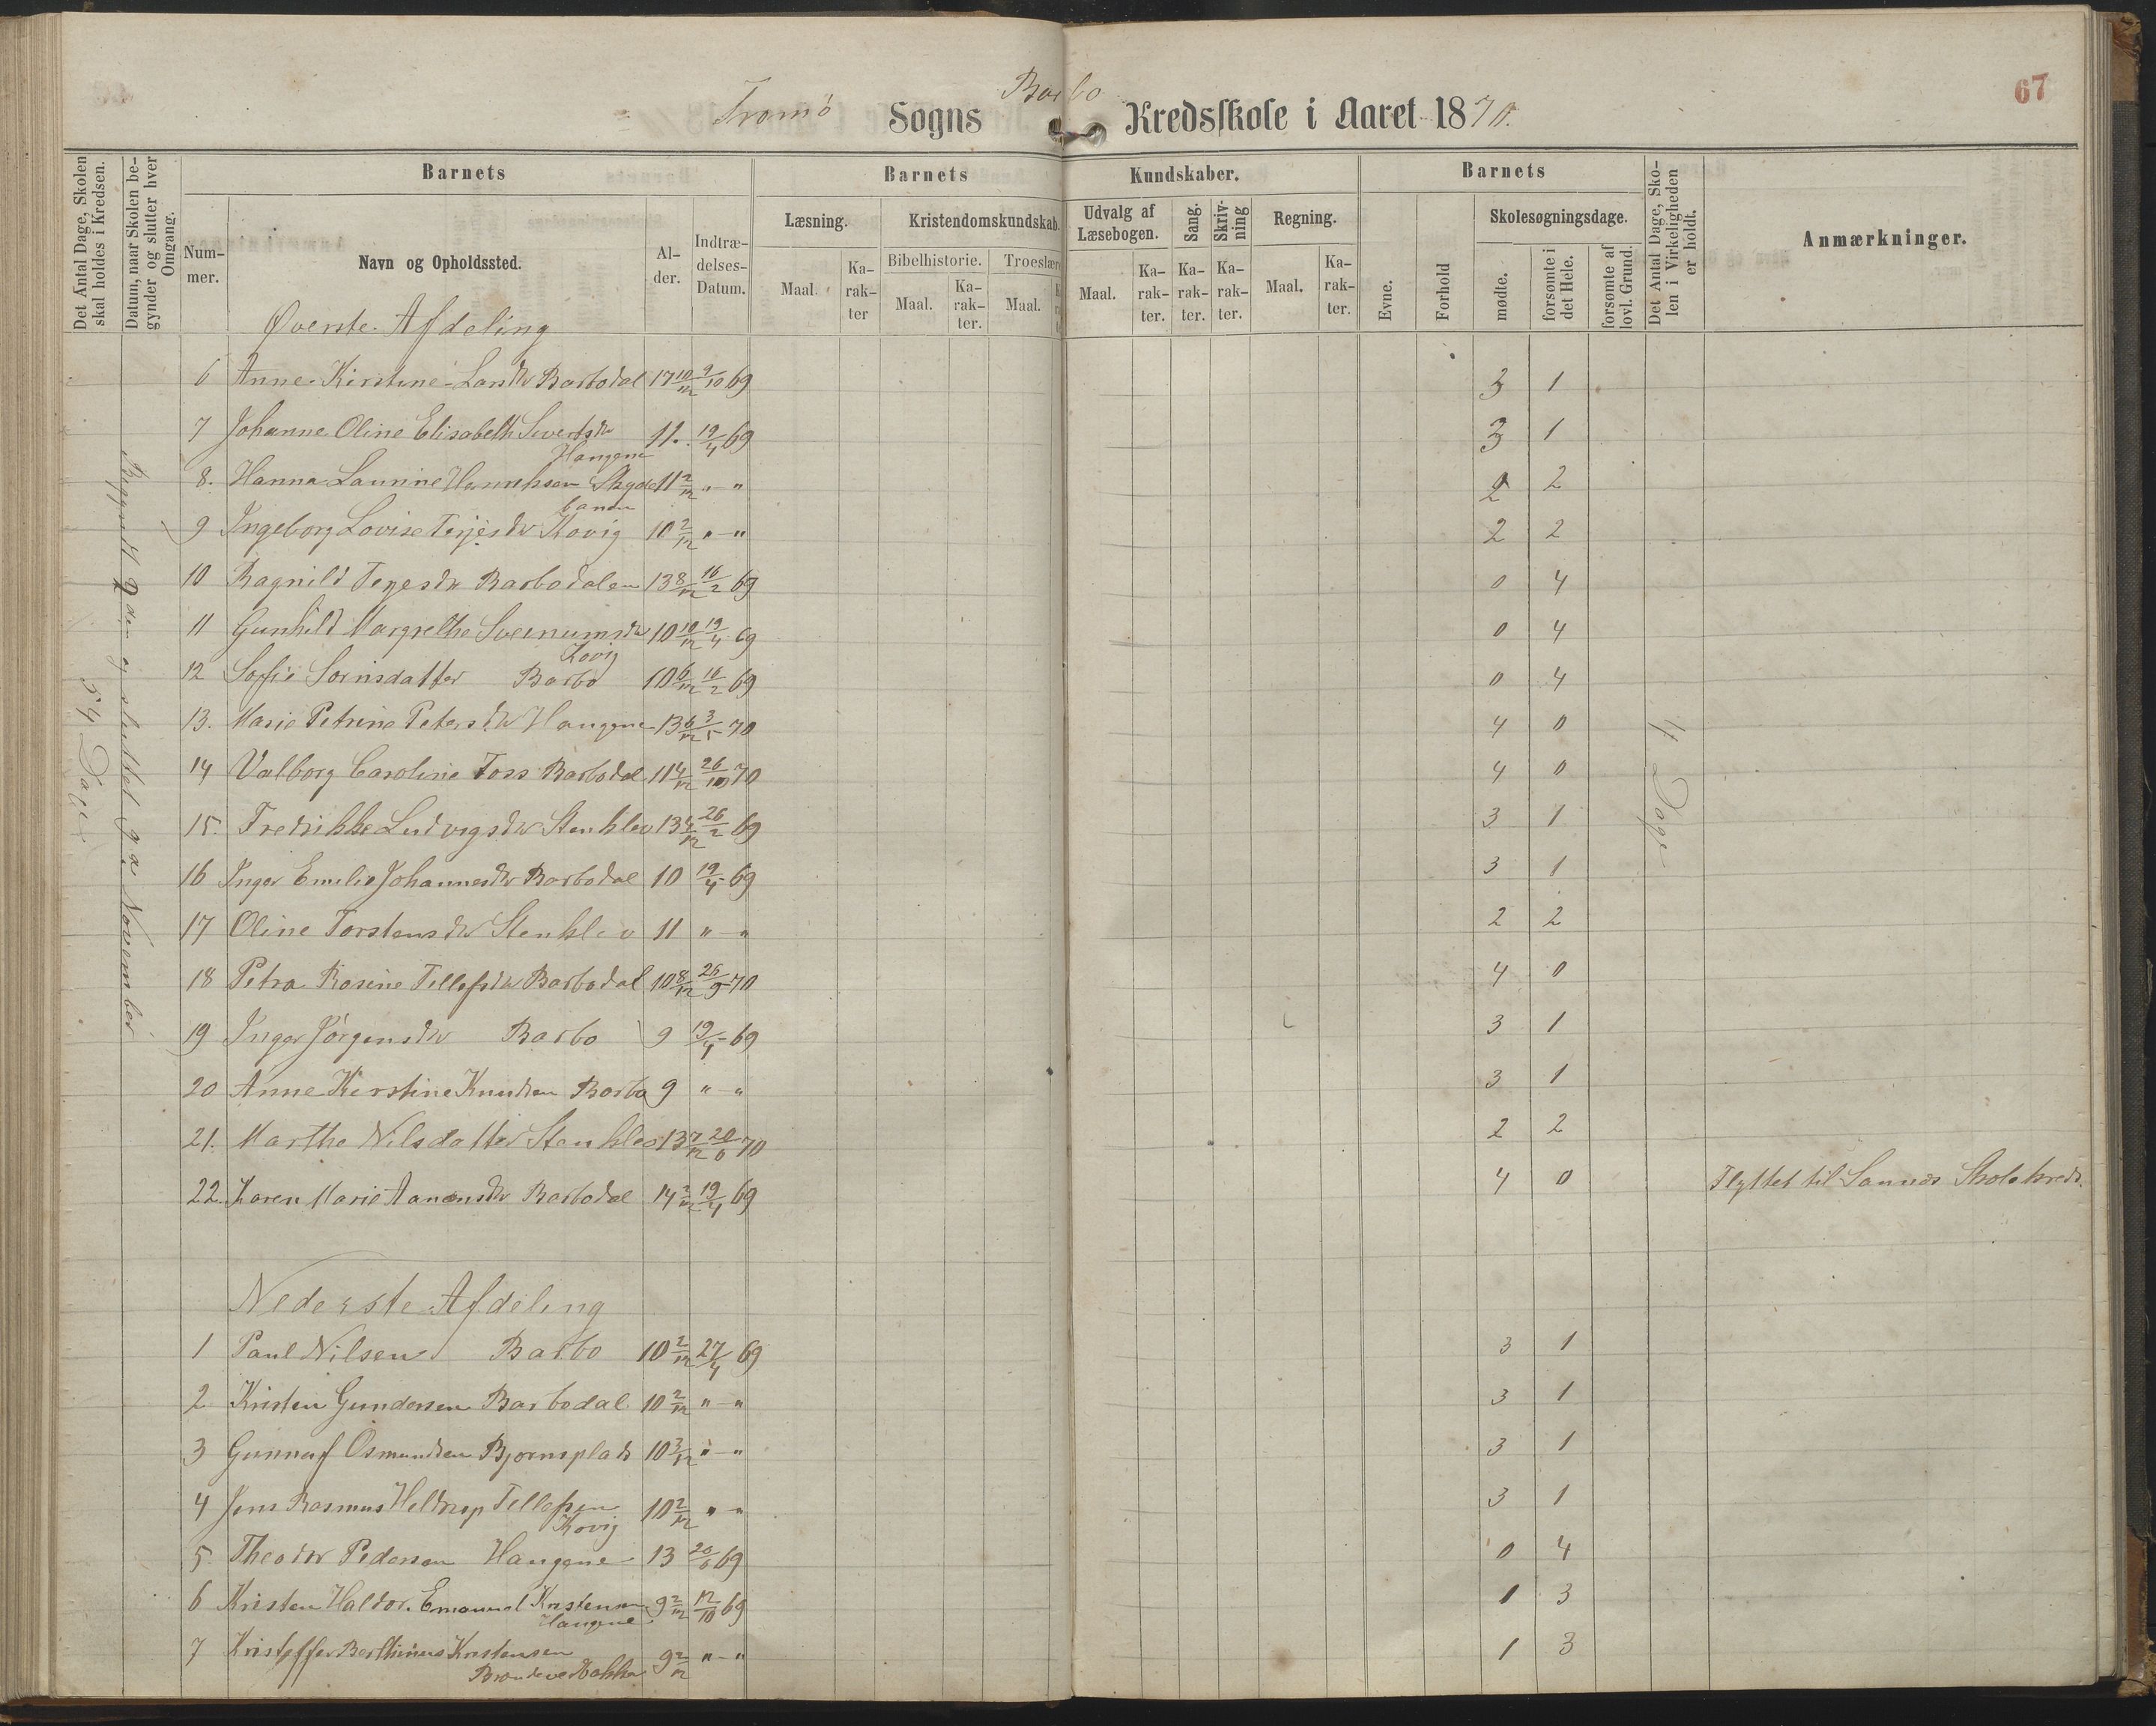 67
Tromø Sogns Barbo Kredsskole i Aaret 1870.
Det Antal Dage, Skolen skal holdes i Kredsen.
Datum, naar Skolen begynder og slutter hver Omgang.
Barnets
Barnets
Kundskaber.
Barnets
Det Antal Dage, Skolen i Virkeligheden er holdt.
Anmærkninger.
Nummer.
Navn og Opholdssted.
Alder.
Indtrædelses-Datum.
Læsning.
Kristendomskundskab.
Udvalg af Læsebogen.
Sang.
Skrivning
Regning.
Evne.
Forhold
Skolesøgningsdage.
Bibelhistorie.
Troeslære
Maal.
Karakter
Maal.
Karakter.
Maal.
Maal.
Karakter.
Karakter.
Karakter.
Maal.
Karakter.
mødte.
forsømte i det Hele.
forsømte af lovl. Grund.
54 Dage
Begyndt 2den og sluttet 9de November
4 Dage
Øverste Afdeling
6 Anne Kirstine Larsdtr Barbodal 17 10/12 9/10 69 3 1
7 Johanne Oline Elisabeth Sivertsdtr 11. 19/4 69 3 1
Haugene
8. Hanna Laurine Henriksen Skyde 11 2/12 " - " 2 2
banen
9 Ingeborg Lovise Terjesdtr Kovig 10 2/12 " - " 2 2
10 Ragnild Terjesdtr Barbodalen 13 8/12 16/2 69 0 4
11 Gunhild Margrethe Sveinumsdtr 10 10/12 19/4 69 0 4
Kovig
12 Sofie Sørnsdatter Barbo 10 6/12 16/2 69 0 4
13. Marie Petrine Petersdtr Haugene 13 6/12 3/5 70 4 0
14 Valborg Caroline Foss Barbodal 11 4/12 26/10 70 4 0
15. Fredrikke Ludvigsdtr Stenklev 13 4/12 26/2 69 3 1
16 Inger Emilie Johannesdtr Barbodal 10 19/4 69 3 1
17 Oline Torstensdtr Stenklev 11 " - " 2 2
18 Petra Rosine Tellefsdtr Barbodal 10 8/12 26/9 70 4 0
19 Inger Jørgensdtr Barbo 9 19/4 69 3 1
20 Anne Kirstine Knudsen Barbo 9 " - " 3 1
21. Marthe Nilsdatter Stenklev 13 7/12 20/6 70 2 2
22. Karen Marie Aanonsdtr Barbodal 14 2/12 19/4 69 4 0 Flyttet til Sannes Skolekreds.
Nederste Afdeling
1 Paul Nilsen Barbo 10 2/12 27/4 69 3 1
2 Kristen Gundersen Barbodal 10 2/12 " - " 3 1
3 Gunnuf Osmundsen Bjornsplads 10 3/12 " - " 3 1
4 Jens Rasmus Heldrup Tellefsen 10 2/12 " - " 3 1
Kovig
5. Theodor Pedersen Haugene 13 20/6 69 0 4
6 Kristen Haldor Emanuel Kristensen 9 2/12 12/10 69 1 3
Haugene
7 Kristoffer Berthinius Kristensen 9 2/12 " - " 1 3